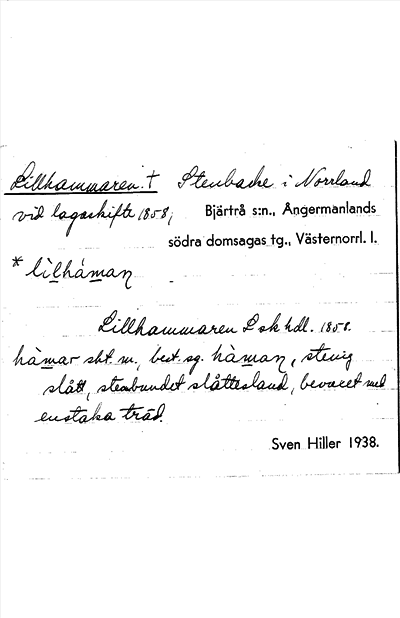 Lillhammaren. † Stenbacke i Norrland
vid lagaskifte 1858; Bjärtrå s:n., Ångermanlands
södra domsagas tg., Västernorrl. l.
* lìlhámaɳ
Lillhammaren Lsk hdl. 1858.
hàmar sbt. m., best. sg. hàmaɳ, stenig
slått, stenbundet slåttesland, bevuxet med
enstaka träd.
Sven Hiller 1938.